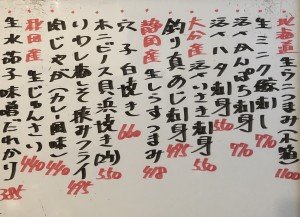 北海道 生うにつまみ(小箱) 1100
生ミンク鯨刺し 770
活かんぱち刺身 770
活ハタ刺身 550
大分産 活いさき刺身 550
釣り真あじ刺身 495
静岡産 生しらすつまみ 418
穴子白焼き 660
本ニビノス貝浜焼き(内) 550
いわし梅しそ挟みフライ 495
肉じゃが(カレー風味) 440
秋田産 生じゅんさい 440
生水茄子味噌だれかけ 385